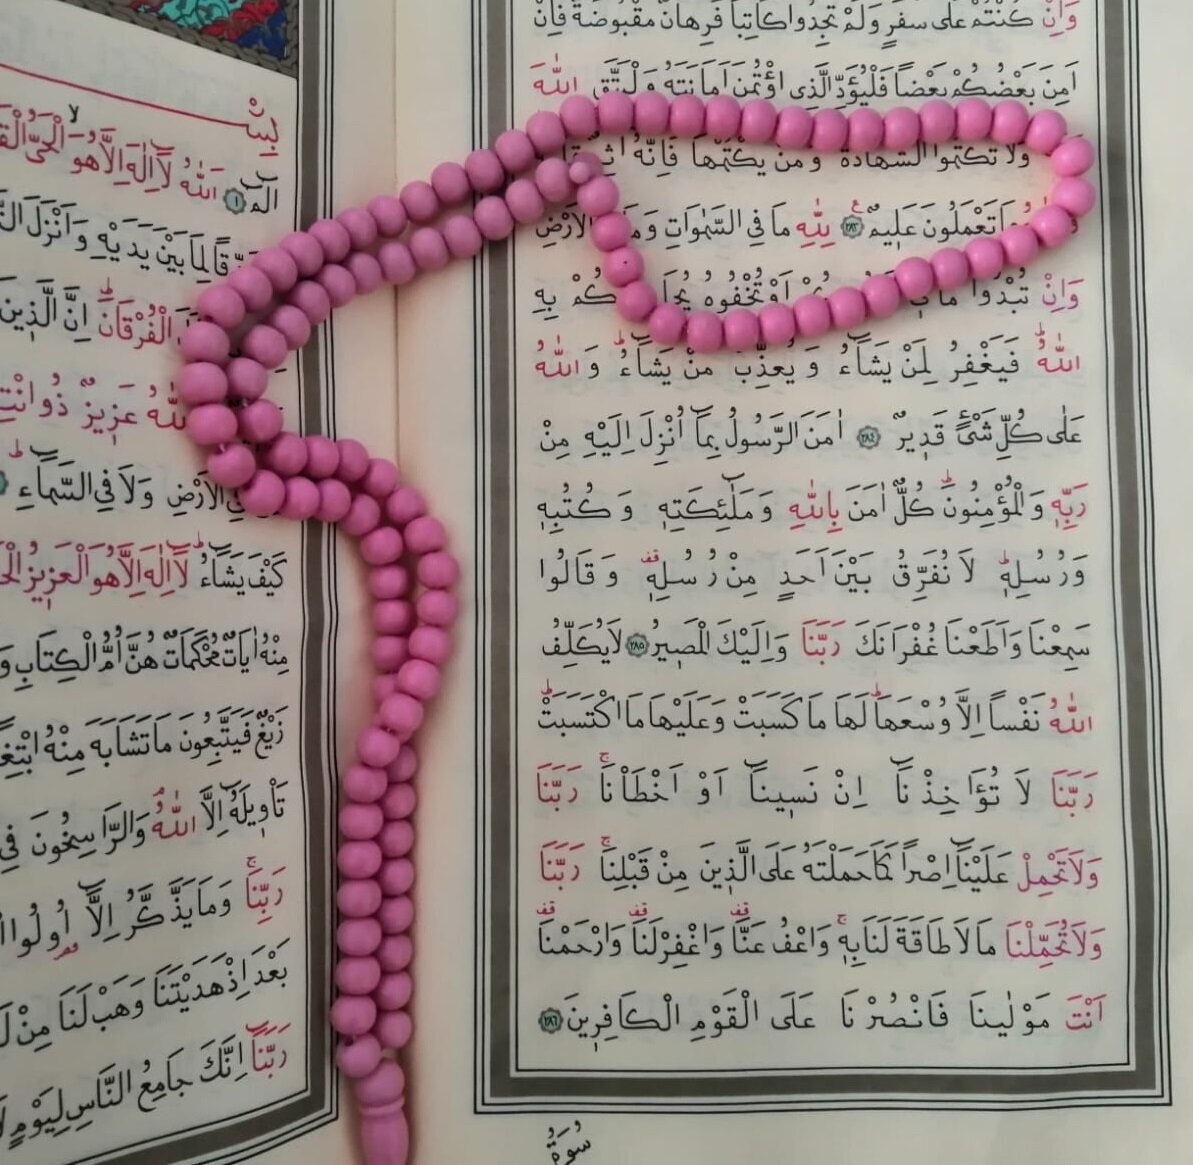 وَاِنْ كُنْتُمْ عَلٰى سَفَرٍ وَلَمْ تَجِدُوا كَاتِبًا فَرِهَانٌ مَقْبُوضَةٌ فَاِنْ
اَمِنَ بَعْضُكُمْ بَعْضًا فَلْيُؤَدِّ الَّذِى اؤْتُمِنَ اَمَانَتَهُ وَلْيَتَّقِ اللّٰهَ
وَلَا تَكْتُمُوا الشَّهَادَةَ وَمَنْ يَكْتُمْهَا فَاِنَّهُ
تَعْمَلُونَ عَلِيمٌ ﴿٢٨٣﴾ لِلّٰهِ مَا فِى السَّمٰوَاتِ وَمَا الْاَرْضِ
وَاِنْ تُبْدُوا مَا اَوْ تُخْفُوهُ بِهِ
اللّٰهُ فَيَغْفِرُ لِمَنْ يَشَاءُ وَيُعَذِّبُ مَنْ يَشَاءُ وَاللّٰهُ
عَلٰى كُلِّ شَىْءٍ قَدِيرٌ ﴿٢٨٤﴾ اٰمَنَ الرَّسُولُ بِمَا اُنْزِلَ اِلَيْهِ مِنْ
رَبِّهِ وَالْمُؤْمِنُونَ كُلٌّ اٰمَنَ بِاللّٰهِ وَمَلٰئِكَتِهِ وَكُتُبِهِ
وَرُسُلِهِ لَا نُفَرِّقُ بَيْنَ اَحَدٍ مِنْ رُسُلِهِ وَقَالُوا
سَمِعْنَا وَاَطَعْنَا غُفْرَانَكَ رَبَّنَا وَاِلَيْكَ الْمَصِيرُ ﴿٢٨٥﴾ لَا يُكَلِّفُ
اللّٰهُ نَفْسًا اِلَّا وُسْعَهَا لَهَا مَا كَسَبَتْ وَعَلَيْهَا مَا اكْتَسَبَتْ
رَبَّنَا لَا تُؤَاخِذْنَا اِنْ نَسِينَا اَوْ اَخْطَاْنَا رَبَّنَا
وَلَا تَحْمِلْ عَلَيْنَا اِصْرًا كَمَا حَمَلْتَهُ عَلَى الَّذِينَ مِنْ قَبْلِنَا رَبَّنَا
وَلَا تُحَمِّلْنَا مَا لَا طَاقَةَ لَنَا بِهِ وَاعْفُ عَنَّا وَاغْفِرْ لَنَا وَارْحَمْنَا
اَنْتَ مَوْلٰينَا فَانْصُرْنَا عَلَى الْقَوْمِ الْكَافِرِينَ ﴿٢٨٦﴾
سُورَةُ
الٓمٓ ﴿١﴾ اَللّٰهُ لَا اِلٰهَ اِلَّا هُوَ الْحَىُّ
لِمَا بَيْنَ يَدَيْهِ وَاَنْزَلَ
الْفُرْقَانَ اِنَّ الَّذِينَ
عَزِيزٌ ذُو
الْاَرْضِ وَلَا فِى السَّمَاءِ
كَيْفَ يَشَاءُ لَا اِلٰهَ اِلَّا هُوَ الْعَزِيزُ
مِنْهُ اٰيَاتٌ مُحْكَمَاتٌ هُنَّ اُمُّ الْكِتَابِ
زَيْغٌ فَيَتَّبِعُونَ مَا تَشَابَهَ مِنْهُ
تَاْوِيلَهُ اِلَّا اللّٰهُ وَالرَّاسِخُونَ فِى
رَبِّنَا وَمَا يَذَّكَّرُ اِلَّا اُولُوا
بَعْدَ اِذْ هَدَيْتَنَا وَهَبْ لَنَا مِنْ
رَبَّنَا اِنَّكَ جَامِعُ النَّاسِ لِيَوْمٍ